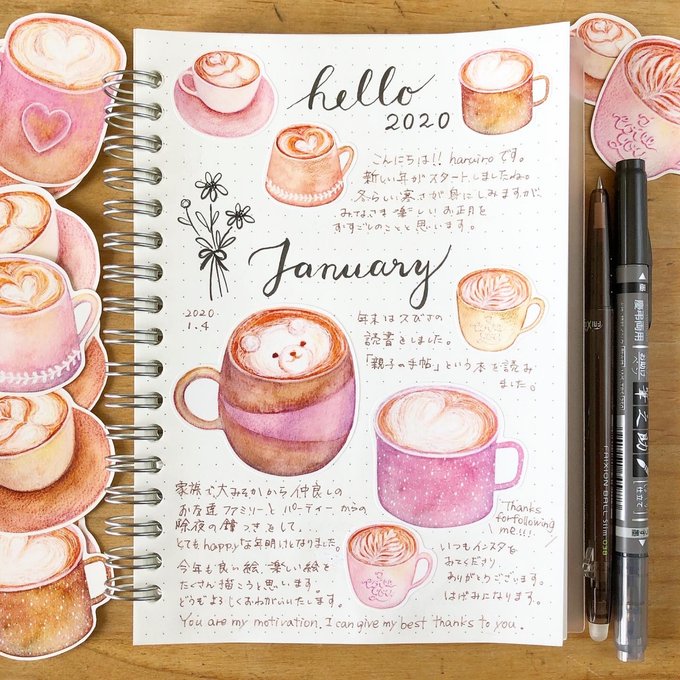 hello
2020
こんにちは!! haruiroです。
新しい年がスタートしましたね。
冬らしい寒さが身にしみますが、
みなさま楽しいお正月を
おすごしのことと思います。
January
2020
1.4
年末は久びさの
読書をしました。
「親子の手帖」という本を読み
ました。
家族で大みそかから仲良しの
お友達ファミリーとパーティーからの
除夜の鐘つきをして、
とてもhappyな年明けとなりました。
今年も良い絵、楽しい絵を
たくさん描こうと思います。
どうぞよろしくおねがいいたします。
Thanks
for following
me!!!
いつもインスタを
みてくださり
ありがとうございます。
はげみになります。
You are my motivation. I can give my best thanks to you.
慶弔両用
筆之助
FRIXION BALL slim 038